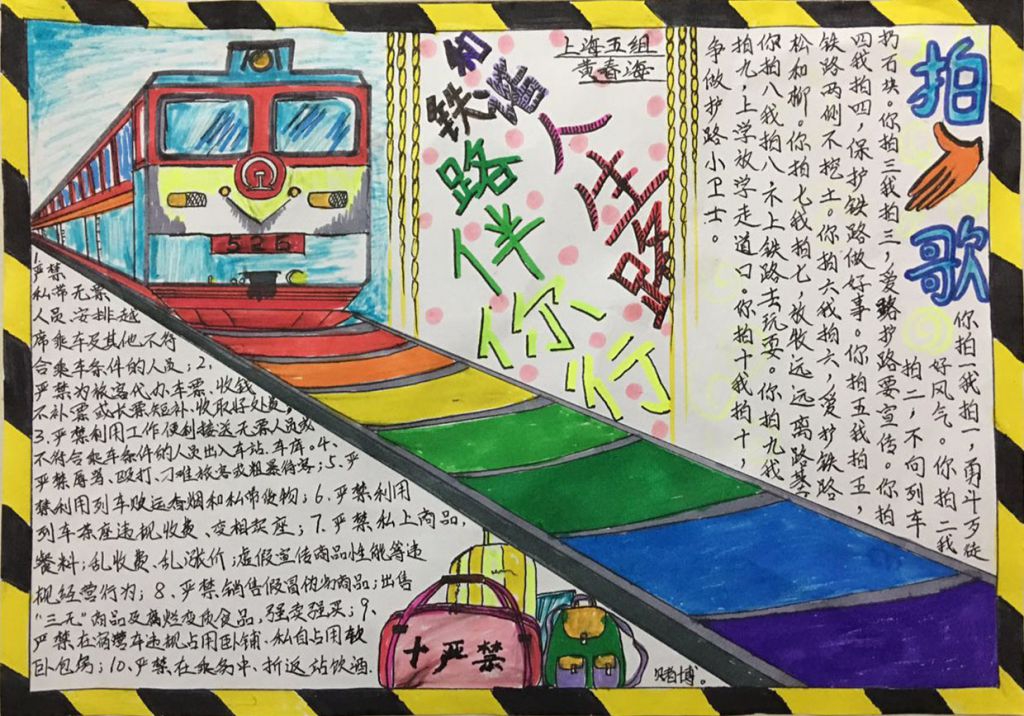 拍
歌
你拍一我拍一,勇斗歹徒
好风气。你拍二我
拍二,不向列车
扔石块。你拍三我拍三,爱路护路要宣传。你拍
四我拍四,保护铁路做好事。你拍五我拍五,
铁路两侧不挖土。你拍六我拍六,爱护铁路
松和柳。你拍七我拍七,放牧远远离路基
你拍八我拍八 不上铁路去玩耍。你拍九我
拍九,上学放学走道口。你拍十我拍十,
争做护路小卫士。
上海五组
黄春海
和谐
铁路伴你行
人生路
525
1.
严禁
私带无票
人员、安排越
席乘车及其他不符
合乘车条件的人员;2、
严禁为旅客代办车票、收钱
不补票或长票短补、收取好处费;
3、严禁利用工作便利接送无票人员或
不符合乘车条件的人员出入车站、车库。4、
严禁辱骂、殴打、刁难旅客或粗暴待客;5、严
禁利用列车贩运香烟和私带货物;6、严禁利用
列车茶座违规收费、变相卖座;7、严禁私上商品,
餐料;乱收费、乱涨价;虚假宣传商品性能等违
规经营行为;8、严禁销售假冒伪劣商品;出售
"三无"商品及腐烂变质食品,强卖强买;9、
严禁在宿营车违规占用卧铺、私自占用软
卧包房;10、严禁在乘务中、折返站饮酒、
赌博。
十严禁